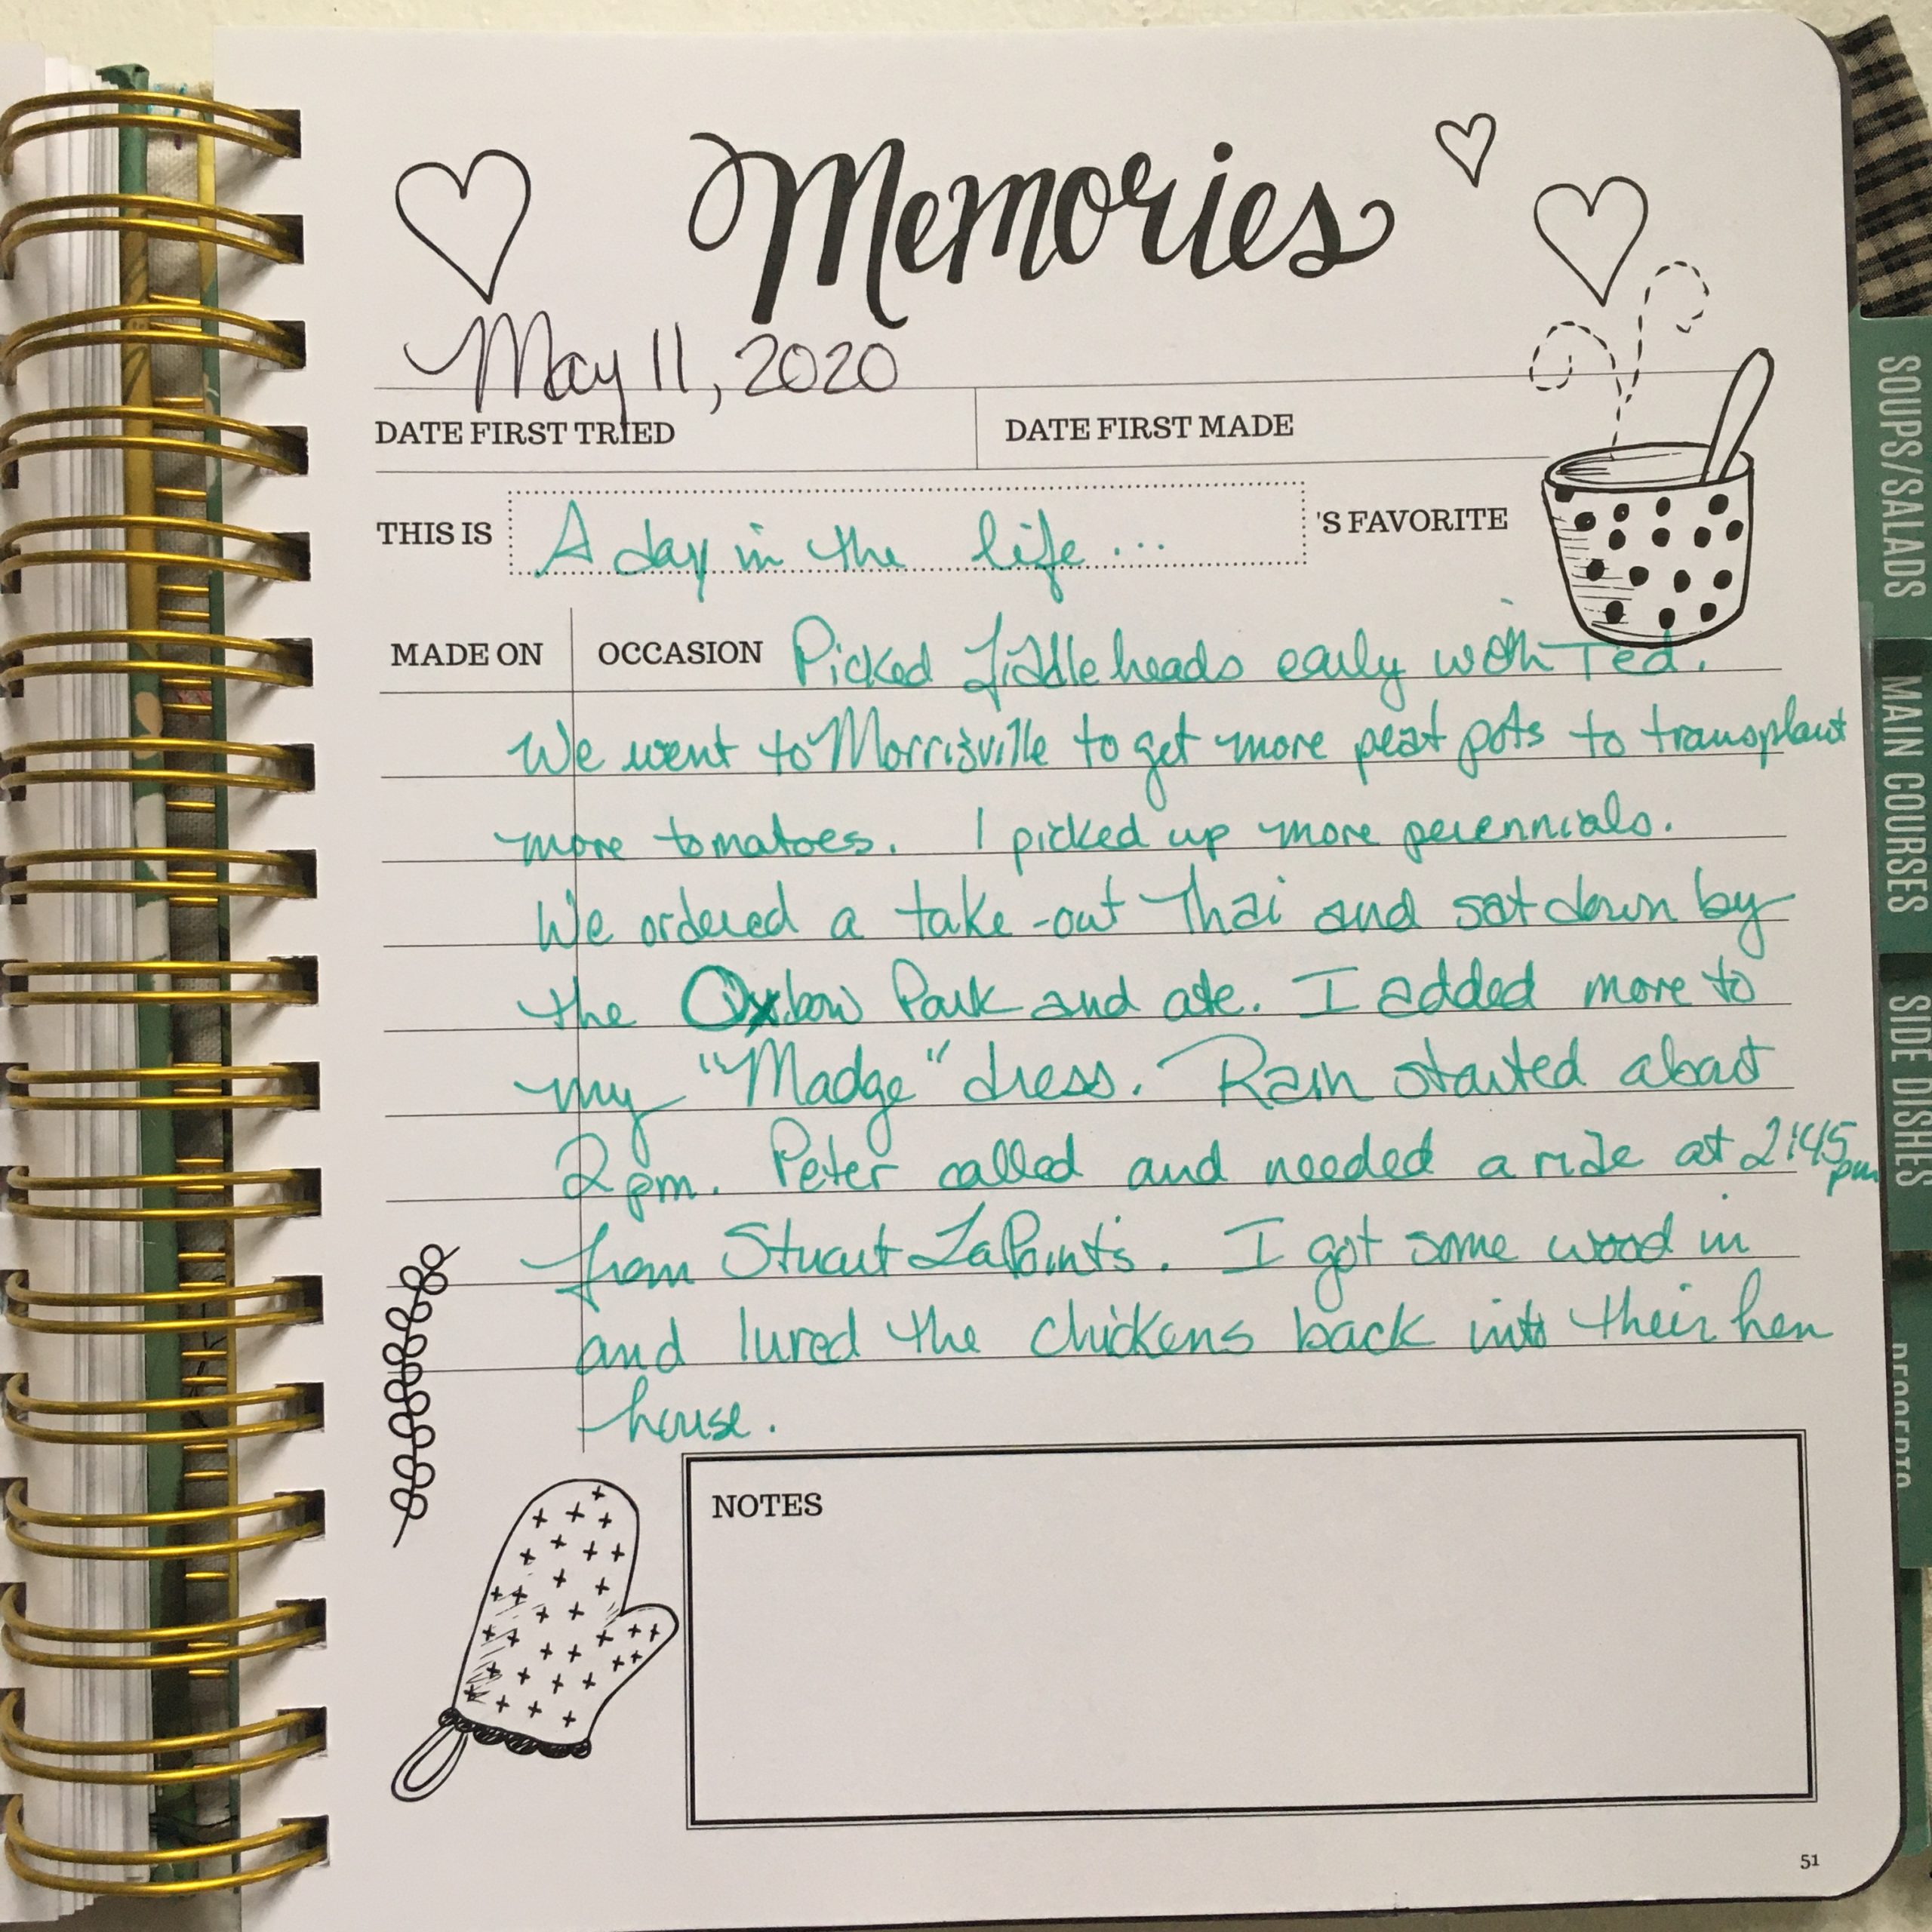 Memories
May 11, 2020
DATE FIRST TRIED
DATE FIRST MADE
THIS IS A day in the life... 'S FAVORITE
MADE ON
OCCASION Picked fiddleheads early with Ted.
We went to Morrisville to get more peat pots to transplant
more tomatoes. I picked up more perennials.
We ordered a take-out Thai and sat down by
the Oxbow Park and ate. I added more to
my "Madge" dress. Rain started about
2pm. Peter called and needed a ride at 2:45pm
from Stuart LaPoint's. I got some wood in
and lured the chickens back into their hen
house.
NOTES
51
SOUPS/SALADS
MAIN COURSES
SIDE DISHES
DESSERTS